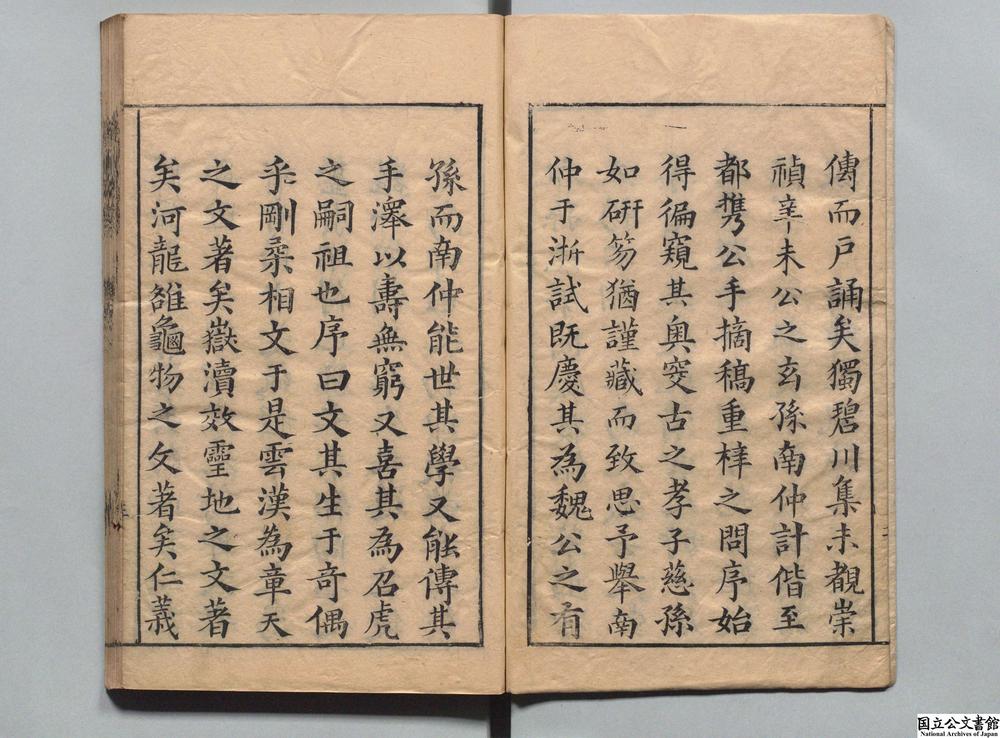 傳而戸誦矣獨碧川集未覩崇
禎辛未公之玄孫南仲計偕至
都携公手摘稿重梓之問序始
得徧窺其奥窔古之孝子慈孫
如硏笏猶謹藏而致思予舉南
仲于浙試既慶其為魏公之有
孫而南仲能世其學又能傳其
手澤以壽無窮又喜其為召虎
之嗣祖也序曰文其生于奇偶
乎剛柔相文于是雲漢為章天
之文著矣嶽瀆效靈地之文著
矣河龍雒龜物之文著矣仁義
国立公文書館
National Archives of Japan